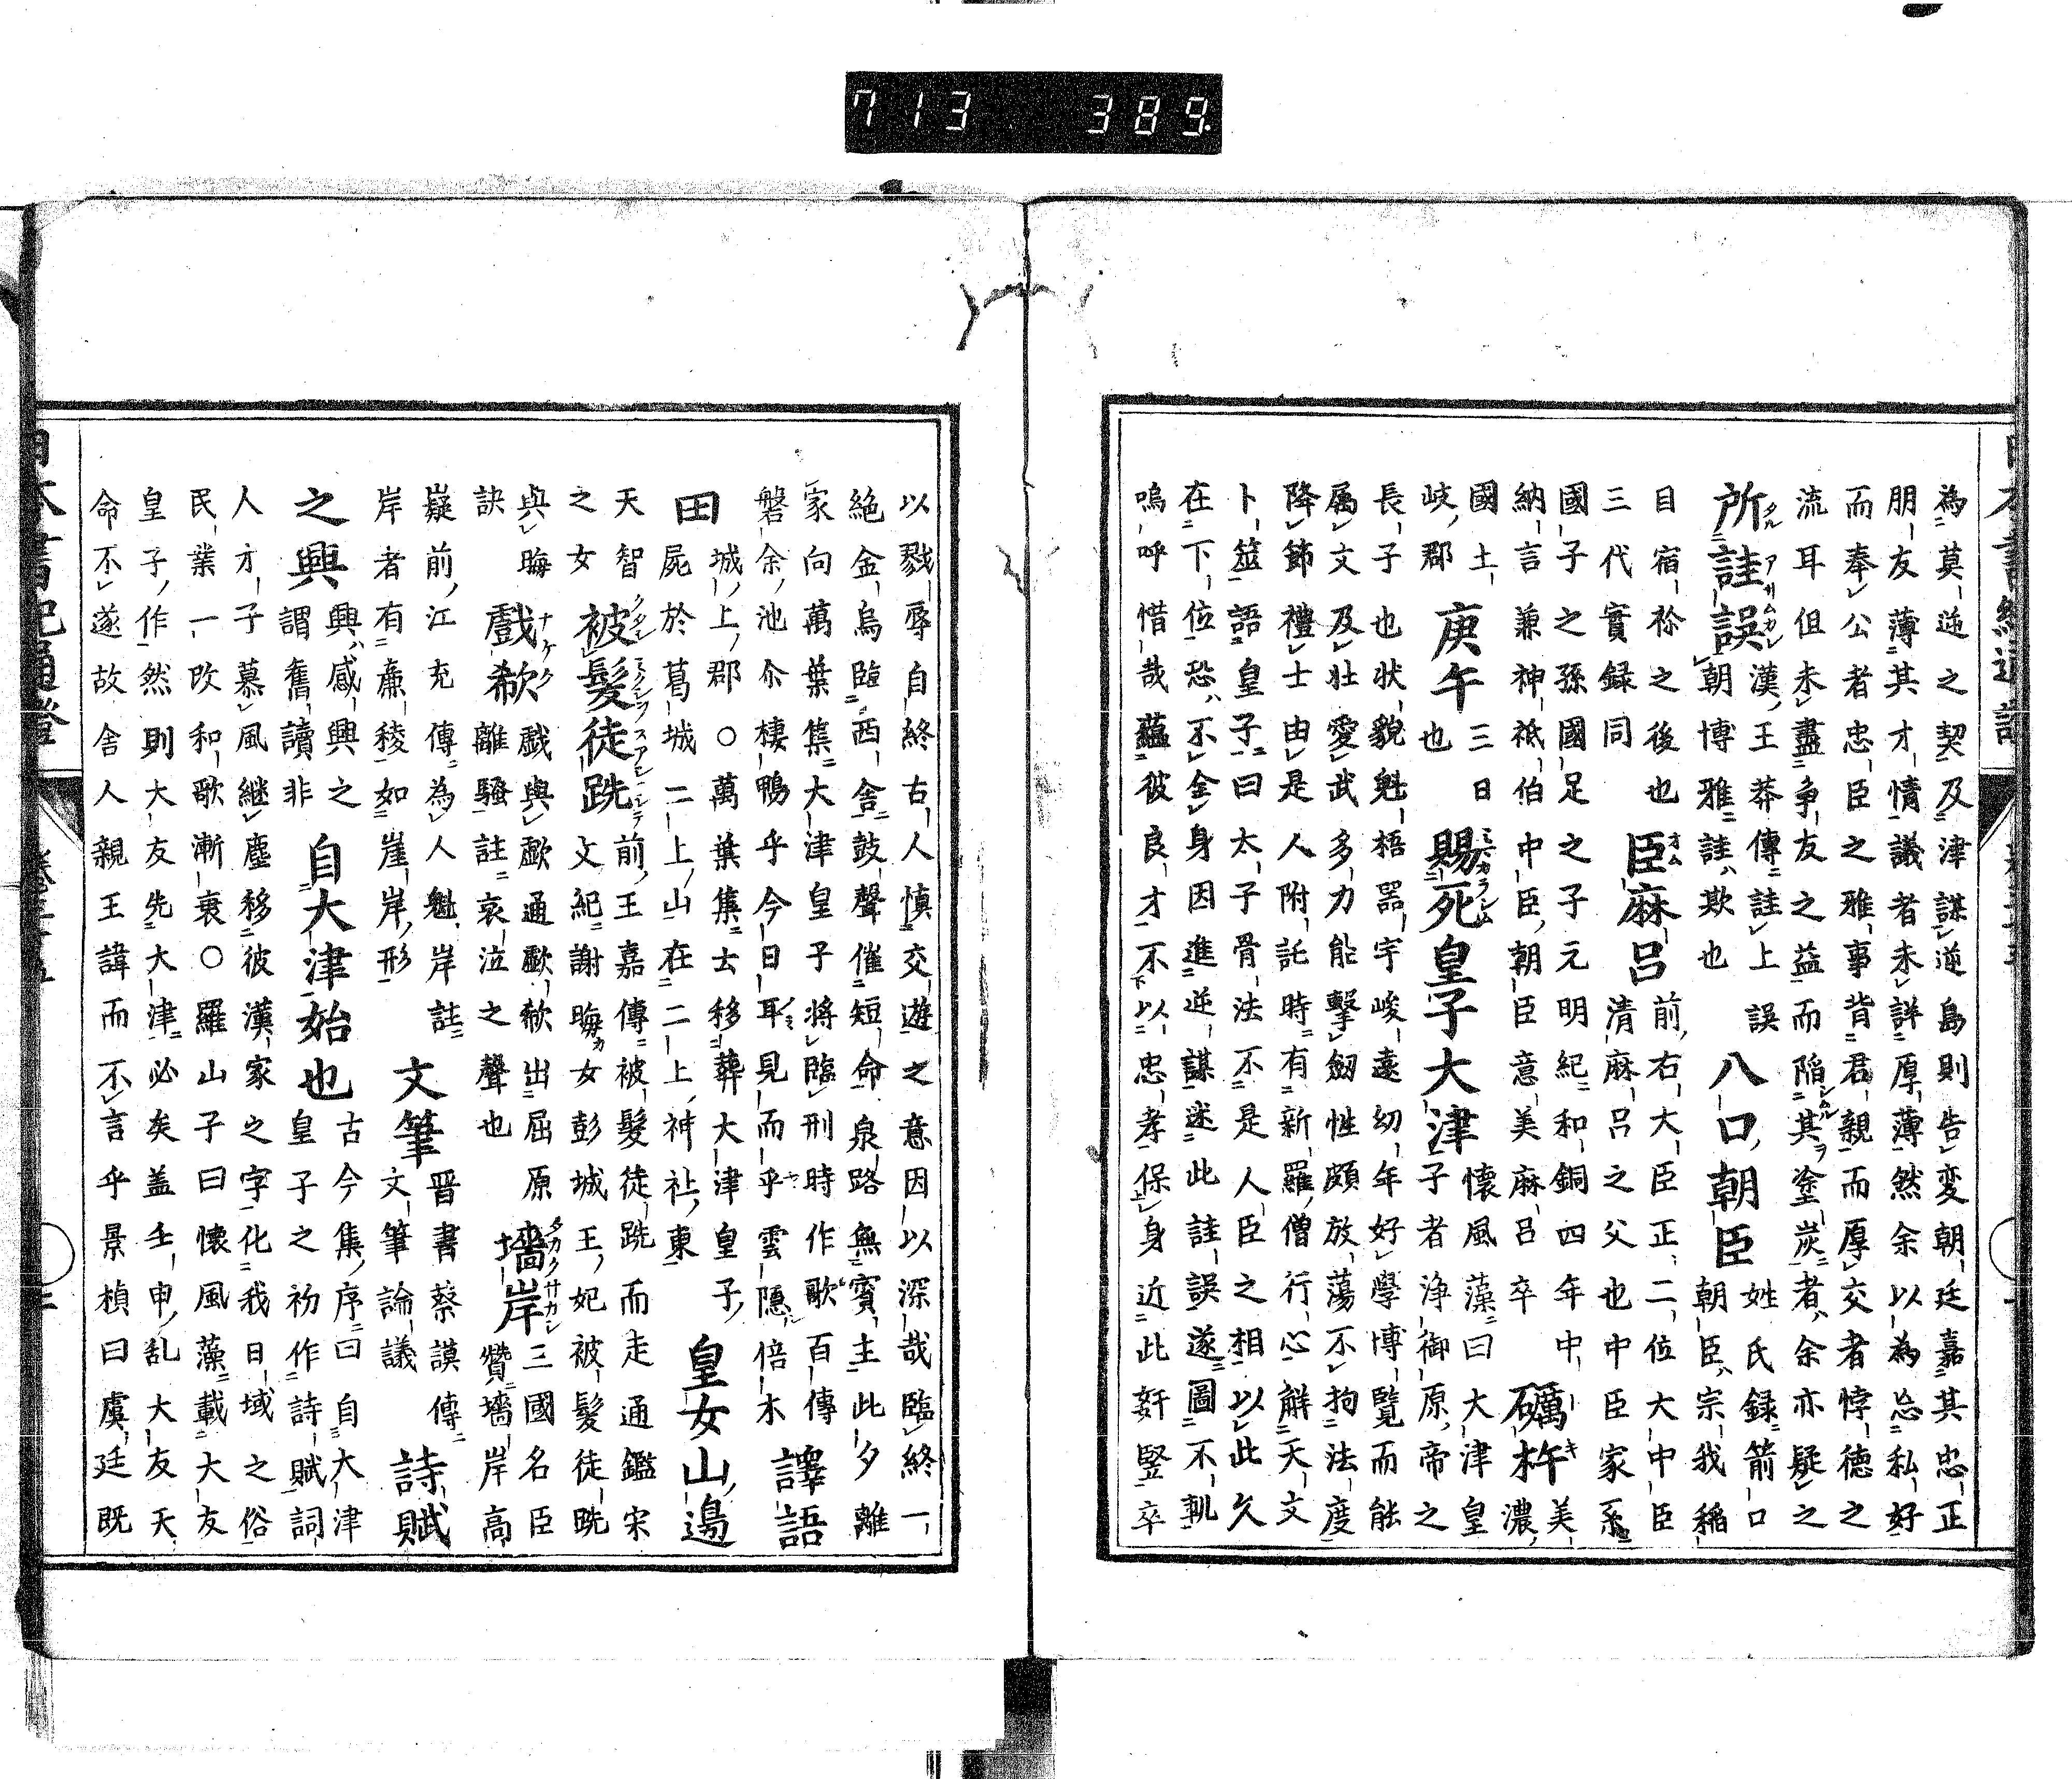 713 389.
為莫逆之契及津謀逆島則告変朝廷嘉其忠正
朋友薄其才情議者未詳厚薄然余以為忘私好
而奉公者忠臣之雅事背君親而厚交者悖徳之
流耳但未盡争友之益而陷其塗炭者余亦疑之
所詿誤漢王莽傳詿上誤
朝博雅詿欺也
八口朝臣姓氏録箭口
朝臣宗我稲
目宿祢之後也
三代實録同
臣麻呂前右大臣正二位大中臣
清麻呂之父也中臣家系
國子之孫國足之子元明紀和銅四年中
納言兼神祇伯中臣朝臣意美麻呂卒
礪杵美
濃
國土
岐郡
庚午三日
也
賜死皇子大津懐風藻曰大津皇
子者浄御原帝之
長子也状貌魁梧器宇峻遠幼年好學博覧而能
属文及壮愛武多力能擊劔性頗放蕩不拘法度
降節禮士由是人附託時有新羅僧行心觧天文
卜筮語皇子曰太子骨法不是人臣之相以此久
在下位恐不全身因進逆謀迷此詿誤遂圖不軌
嗚呼惜哉蘊彼良才不以忠孝保身近此姧豎卒
以戮辱自終古人慎交遊之意因以深哉臨終一
絶金烏臨西舎鼓聲催短命泉路無賓主此夕離
家向萬葉集大津皇子将臨刑時作歌百傳
磐余池尒棲鴨乎今日耳見而乎雲隠倍木
譯語
田城上郡○萬葉集云移葬大津皇子
屍於葛城二上山在二上神社東
皇女山邉
天智
之女
被髮徒跣前王嘉傳被髮徒跣而走通鑑宋
文紀謝晦女彭城王妃被髮徒跣
與晦
訣
戲欷戲與歔通歔欷出屈原
離騷註哀泣之聲也
墻岸三國名臣
贊墻岸高
嶷前江充傳為人魁岸註
岸者有亷稜如崖岸形
文筆晋書蔡謨傳
文筆論議
詩賦
之興興感興之
謂舊讀非
自大津始也古今集序曰自大津
皇子之初作詩賦詞
人才子慕風継塵移彼漢家之字化我日域之俗
民業一改和歌漸衰○羅山子曰懐風藻載大友
皇子作然則大友先大津必矣盖壬申乱大友天
命不遂故舎人親王諱而不言乎景楨曰虞廷既